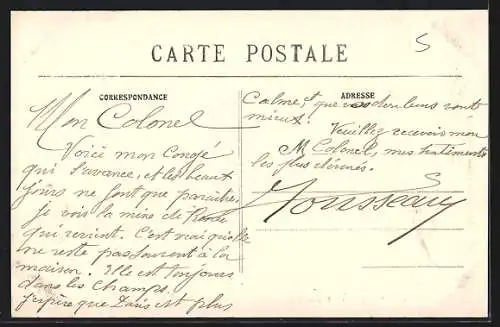 CARTE POSTALE
5
CORRESPONDANCE
ADRESSE
Mon Colonel
Voici mon Congé
qui s'avance, et les beaux
jours ne font que paraître.
je vois la mine de
qui revient. C'est vrai qu'elle
ne reste pas souvent à la
maison. Elle est toujours
dans les Champs.
j'espère que Paris est plus
Calme, et que vos douleurs vont
mieux.
Veuillez recevoir mon
Colonel, mes sentiments
les plus dévoués.
Mousseau